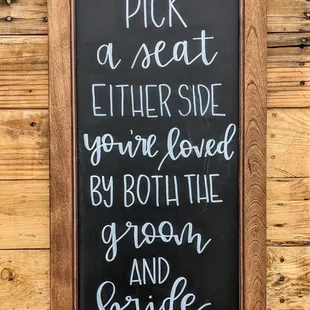 PICK
a seat
EITHER SIDE
you're loved
BY BOTH THE
groom
AND
bride